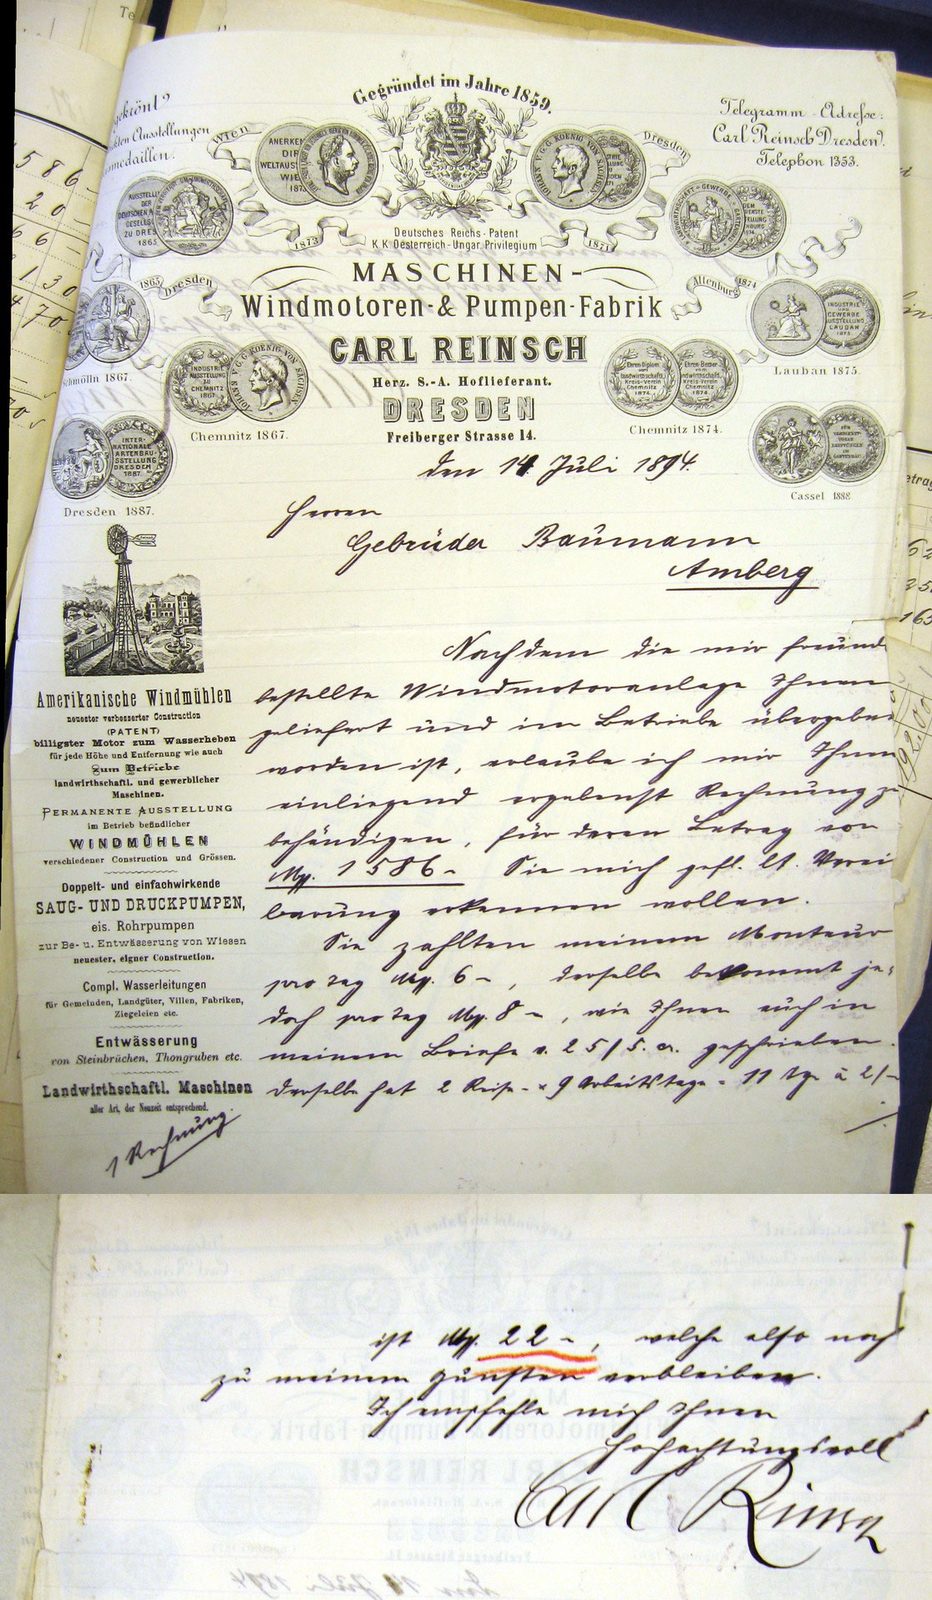 Gegründet im Jahre 1859.
gekrönt
Ausstellungen
medaillen.
Telegramm-Adresse:
Carl Reinsch Dresden.
Telephon 1353.
Wien
1873
Dresden
1871
1865 Dresden
Altenburg 1874
Deutsches Reichs-Patent
K.K. Oesterreich-Ungar. Privilegium
MASCHINEN-
Windmotoren- & Pumpen-Fabrik
CARL REINSCH
Herz. S.-A. Hoflieferant.
DRESDEN
Freiberger Strasse 14.
INDUSTRIE AUSSTELLUNG ZU CHEMNITZ 1867
INTERNATIONALE GARTENBAU AUSSTELLUNG DRESDEN 1887.
chmölln 1867.
Chemnitz 1867.
Dresden 1887.
Lauban 1875.
Chemnitz 1874.
Cassel 1888.
den 14 Juli 1894.
Herren
Gebrüder Baumann
Amberg
Nachdem die mir freund
bestellte Windmotoranlage Ihnen
geliefert und im Betriebe übergeben
worden ist, erlaube ich mir Ihnen
einliegend ergebenst Rechnung zu
behändigen, für deren Betrag von
M. 1586- Sie mich gefl. lt. Verei
barung erkennen wollen.
Sie zahlten meinem Monteur
pro tag M. 6-, derselbe bekommt je-
doch pro tag M. 8-, wie Ihnen auch in
meinem Briefe v. 25/5. cr. geschrieben.
derselbe hat 2 Reise- & 9 Arbeitstage = 11 tge à 2/-
1 Rechnung.
Amerikanische Windmühlen
neuester verbesserter Construction
(PATENT)
billigster Motor zum Wasserheben
für jede Höhe und Entfernung wie auch
Zum Betriebe
landwirthschaftl. und gewerblicher
Maschinen.
PERMANENTE AUSSTELLUNG
im Betrieb befindlicher
WINDMÜHLEN
verschiedener Construction und Grössen.
Doppelt- und einfachwirkende
SAUG- UND DRUCKPUMPEN,
eis. Rohrpumpen
zur Be- u. Entwässerung von Wiesen
neuester, eigner Construction.
Compl. Wasserleitungen
für Gemeinden, Landgüter, Villen, Fabriken,
Ziegeleien etc.
Entwässerung
von Steinbrüchen, Thongruben etc.
Landwirthschaftl. Maschinen
aller Art, der Neuzeit entsprechend.
ist M. 22-, welche also noch
zu meinem gunsten verbleiben.
Ich empfehle mich Ihnen
Hochachtungsvoll
Carl Reinsch